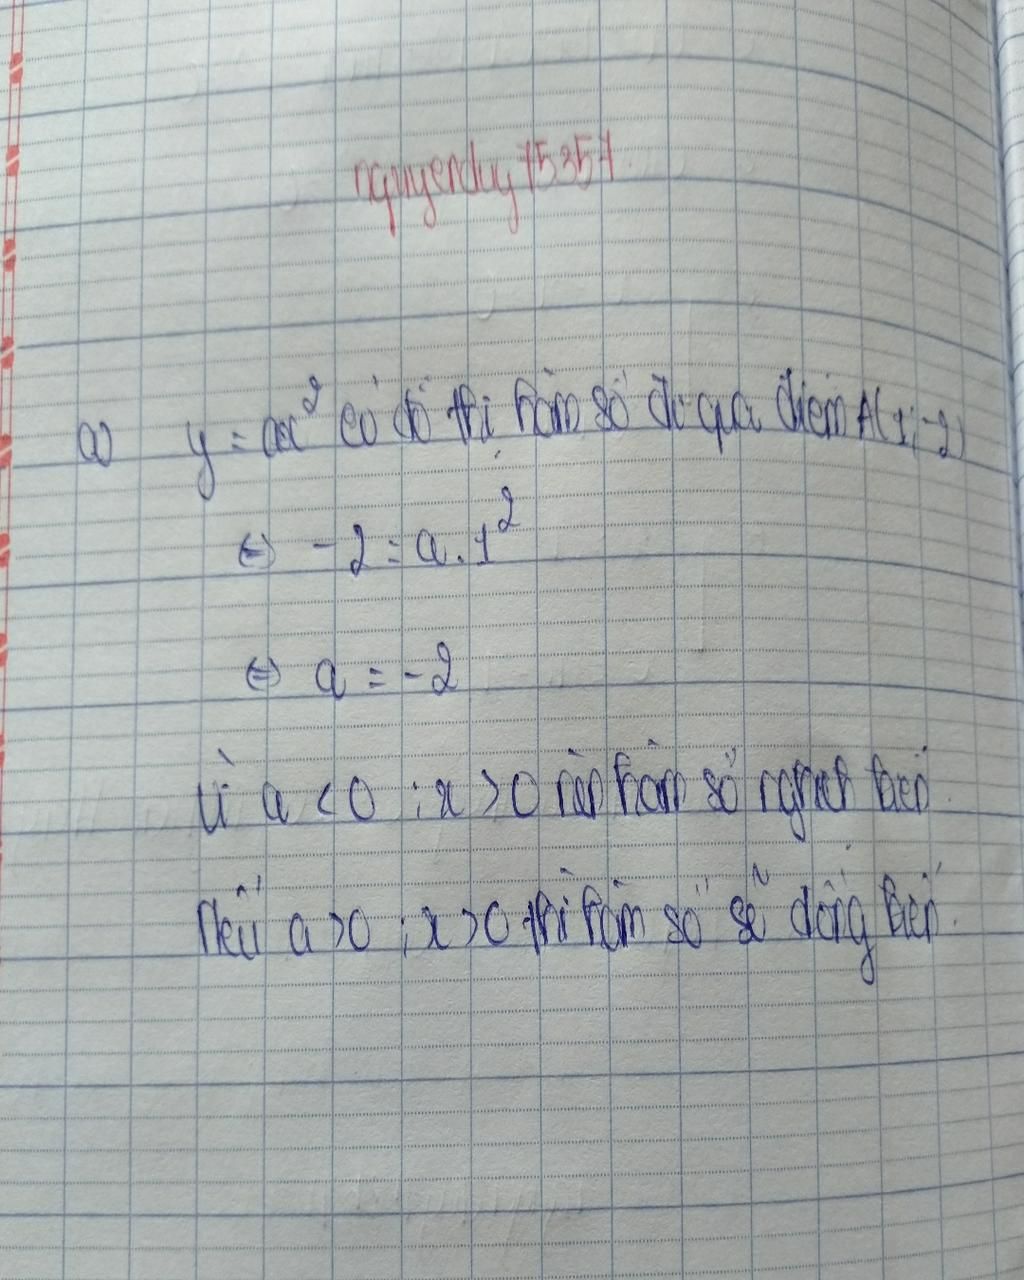 nguyenduy75357
a) y = ax² có đồ thị hàm số đi qua điểm A(1;-2)
⇔ -2 = a.1²
⇔ a = -2
Vì a < 0 ; x > 0 nên hàm số nghịch biến.
Nếu a > 0 ; x > 0 thì hàm số sẽ đồng biến.